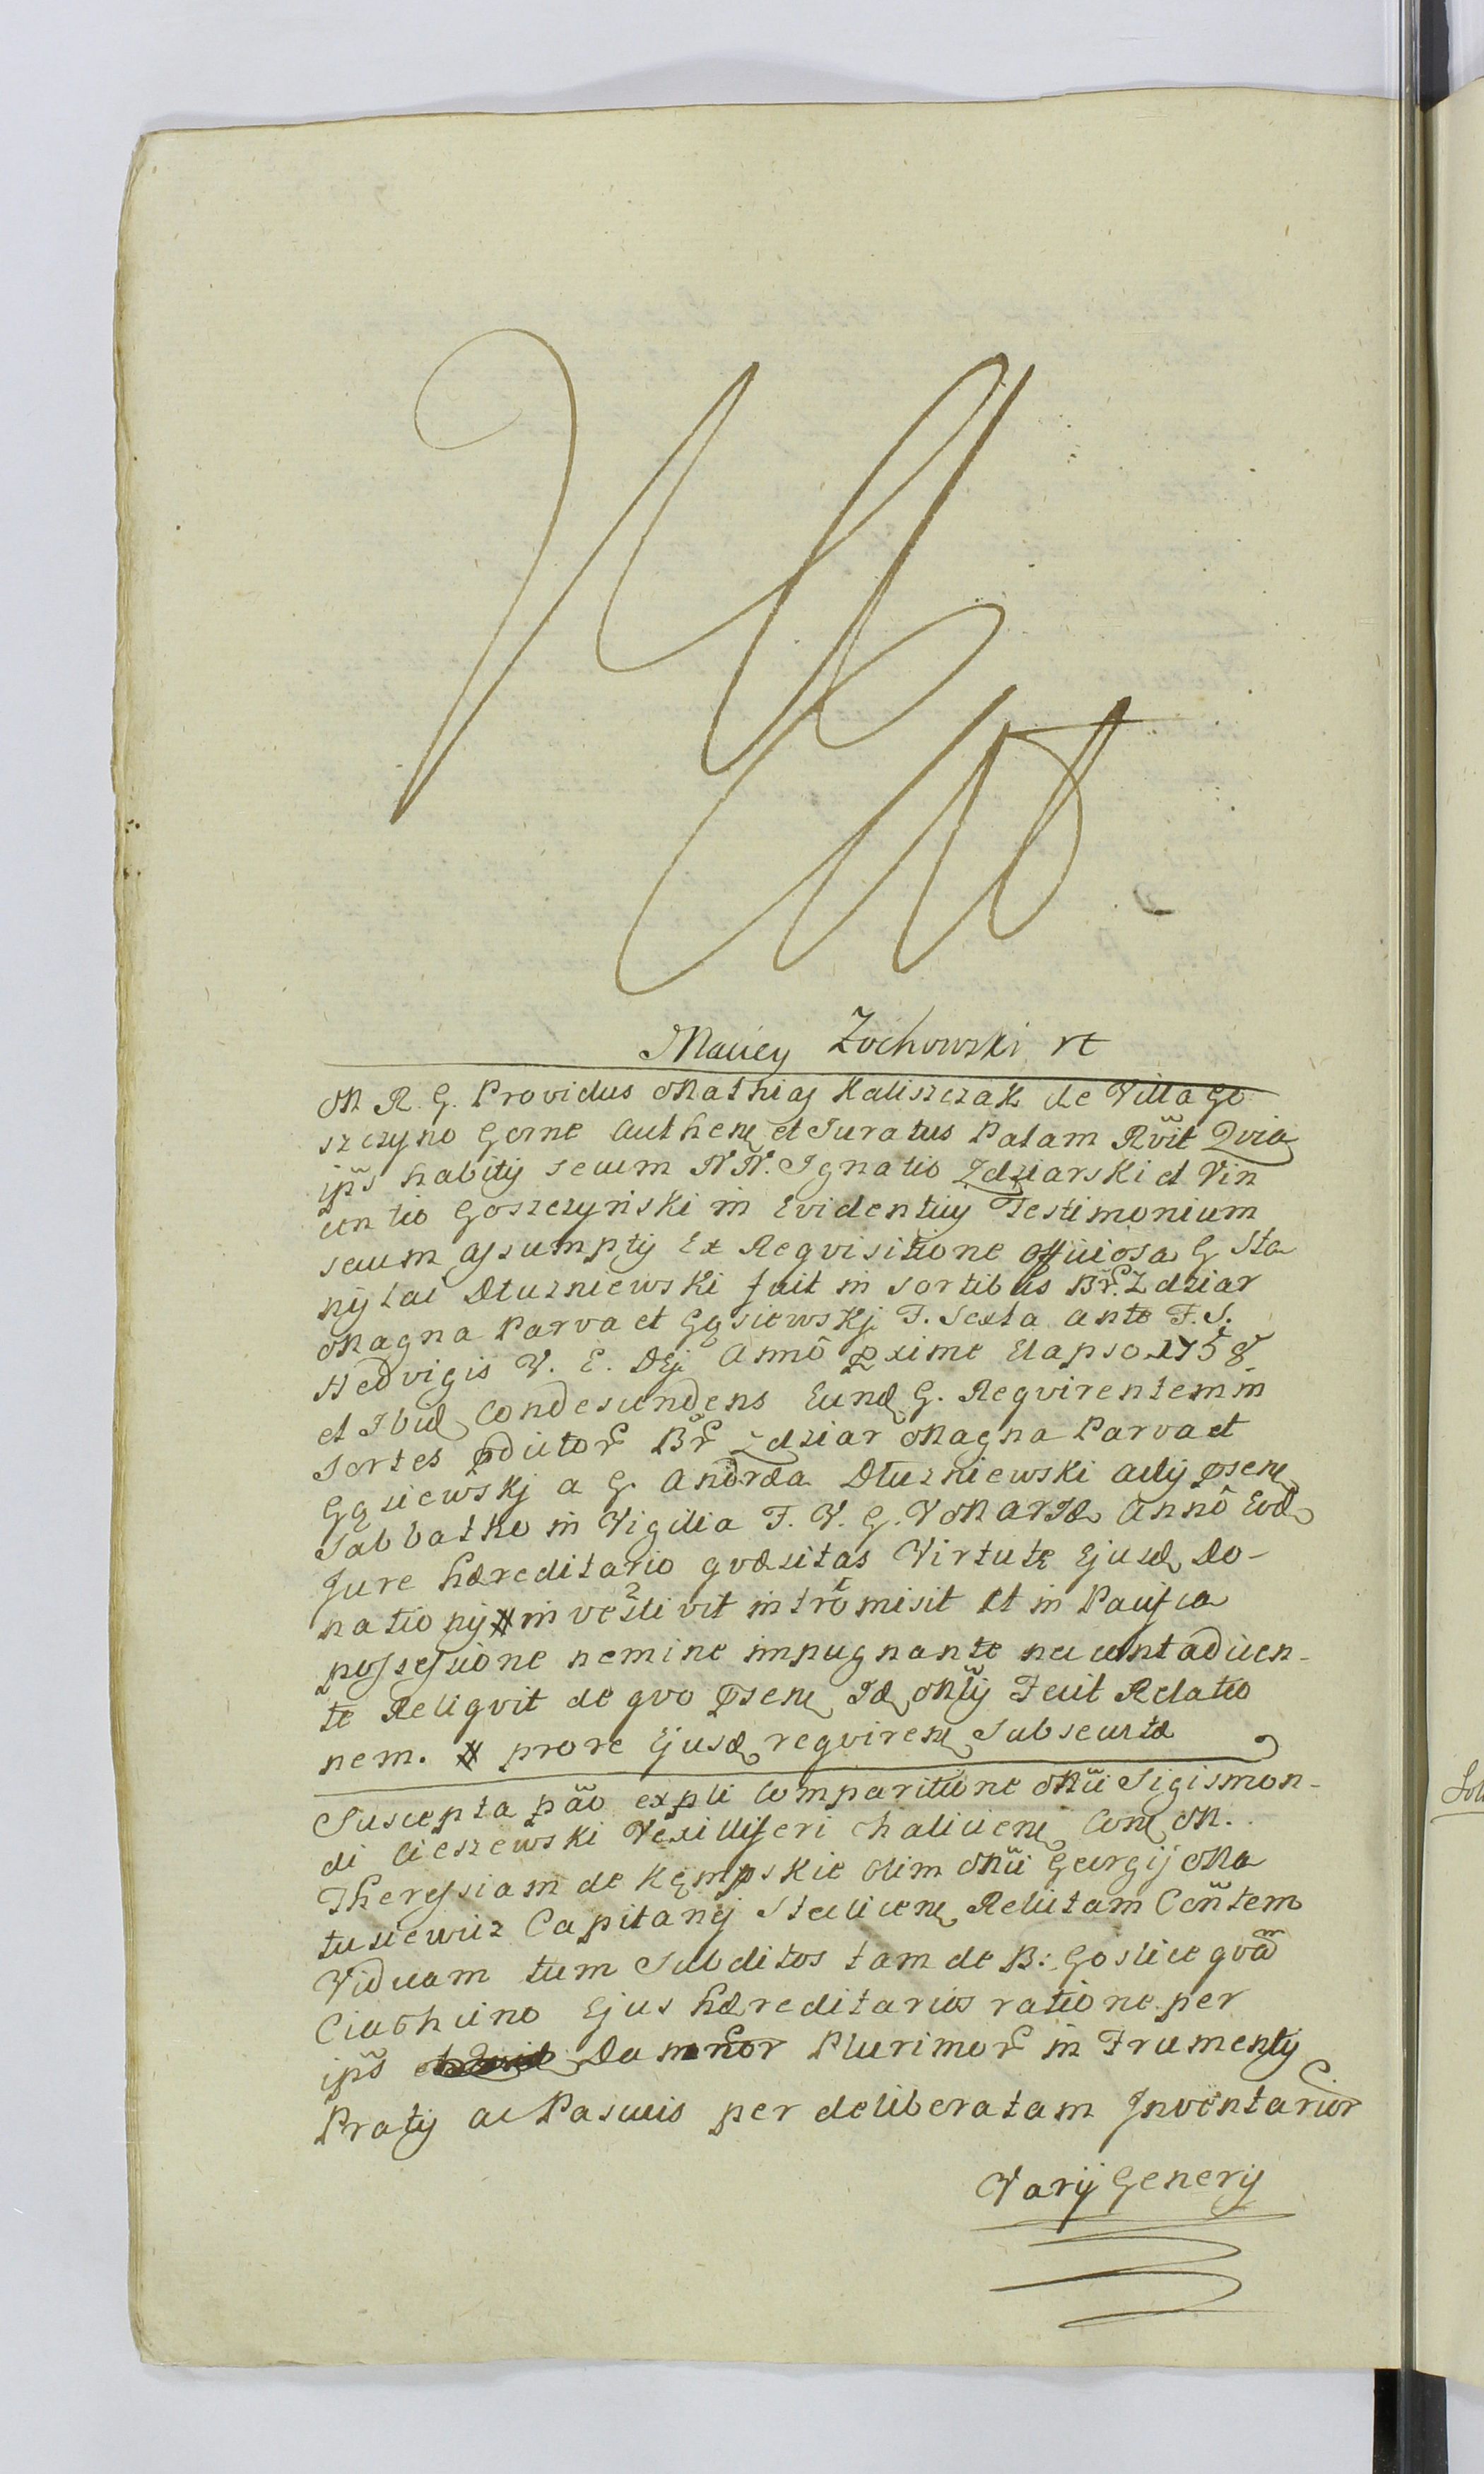 Maciey Żochowski rt
M R. G. Providus Mathias Kaliszczak de Villa Go
szczyno Gorne Authen et Juratus Palam Rvit Qvia
ips habitis secum NN. Ignatio Zdziarski et Vin
centio Goszczyński in Evidentius Testimonium
secum assumptis Ex Reqvisitione officiosa G Sta
nislai Dłuzniewski fuit in sortibus Br. Zdziar
Magna Parva et Gąsiewskj F. Sexta ante F. S.
Hedvigis V. E. Dej Anno pxime Elapso 1758
et Ibid Condescendens Eund G. Reqvirentem in
Sortes pdictor Br Zdziar Magna Parva et
Gąsiewskj a G. Andrea Dłuzniewski actis psen
Sabbatho in Vigilia F. V. G. V Mariæ Anno Eod
Jure hæreditario qvæsitas Virtute Ejusd Do-
nationis investivit intromisit et in Pacifica
possessione nemine impugnante nec contradicen-
te Reliqvit de qvo psen Id Mlis Fecit Relatio
nem. prore Ejusd reqviren Subsecuta
Suscepta pao expli Comparitione Mci Sigismon-
di Cieszewski Vexilliferi halicien Con M.
Theressiam de Kęmpskie olim Mci Georgij Ma
tusiewicz Capitanej Steclicen Relictam Contem
Viduam tum Subditos tam de B: Goslice qvam
Ciachcino Ejus hæreditarios ratione per
ips Damnor Plurimor in Frumentis
Pratis ac Pascuis per deliberatam Inventarior
Varij Generis